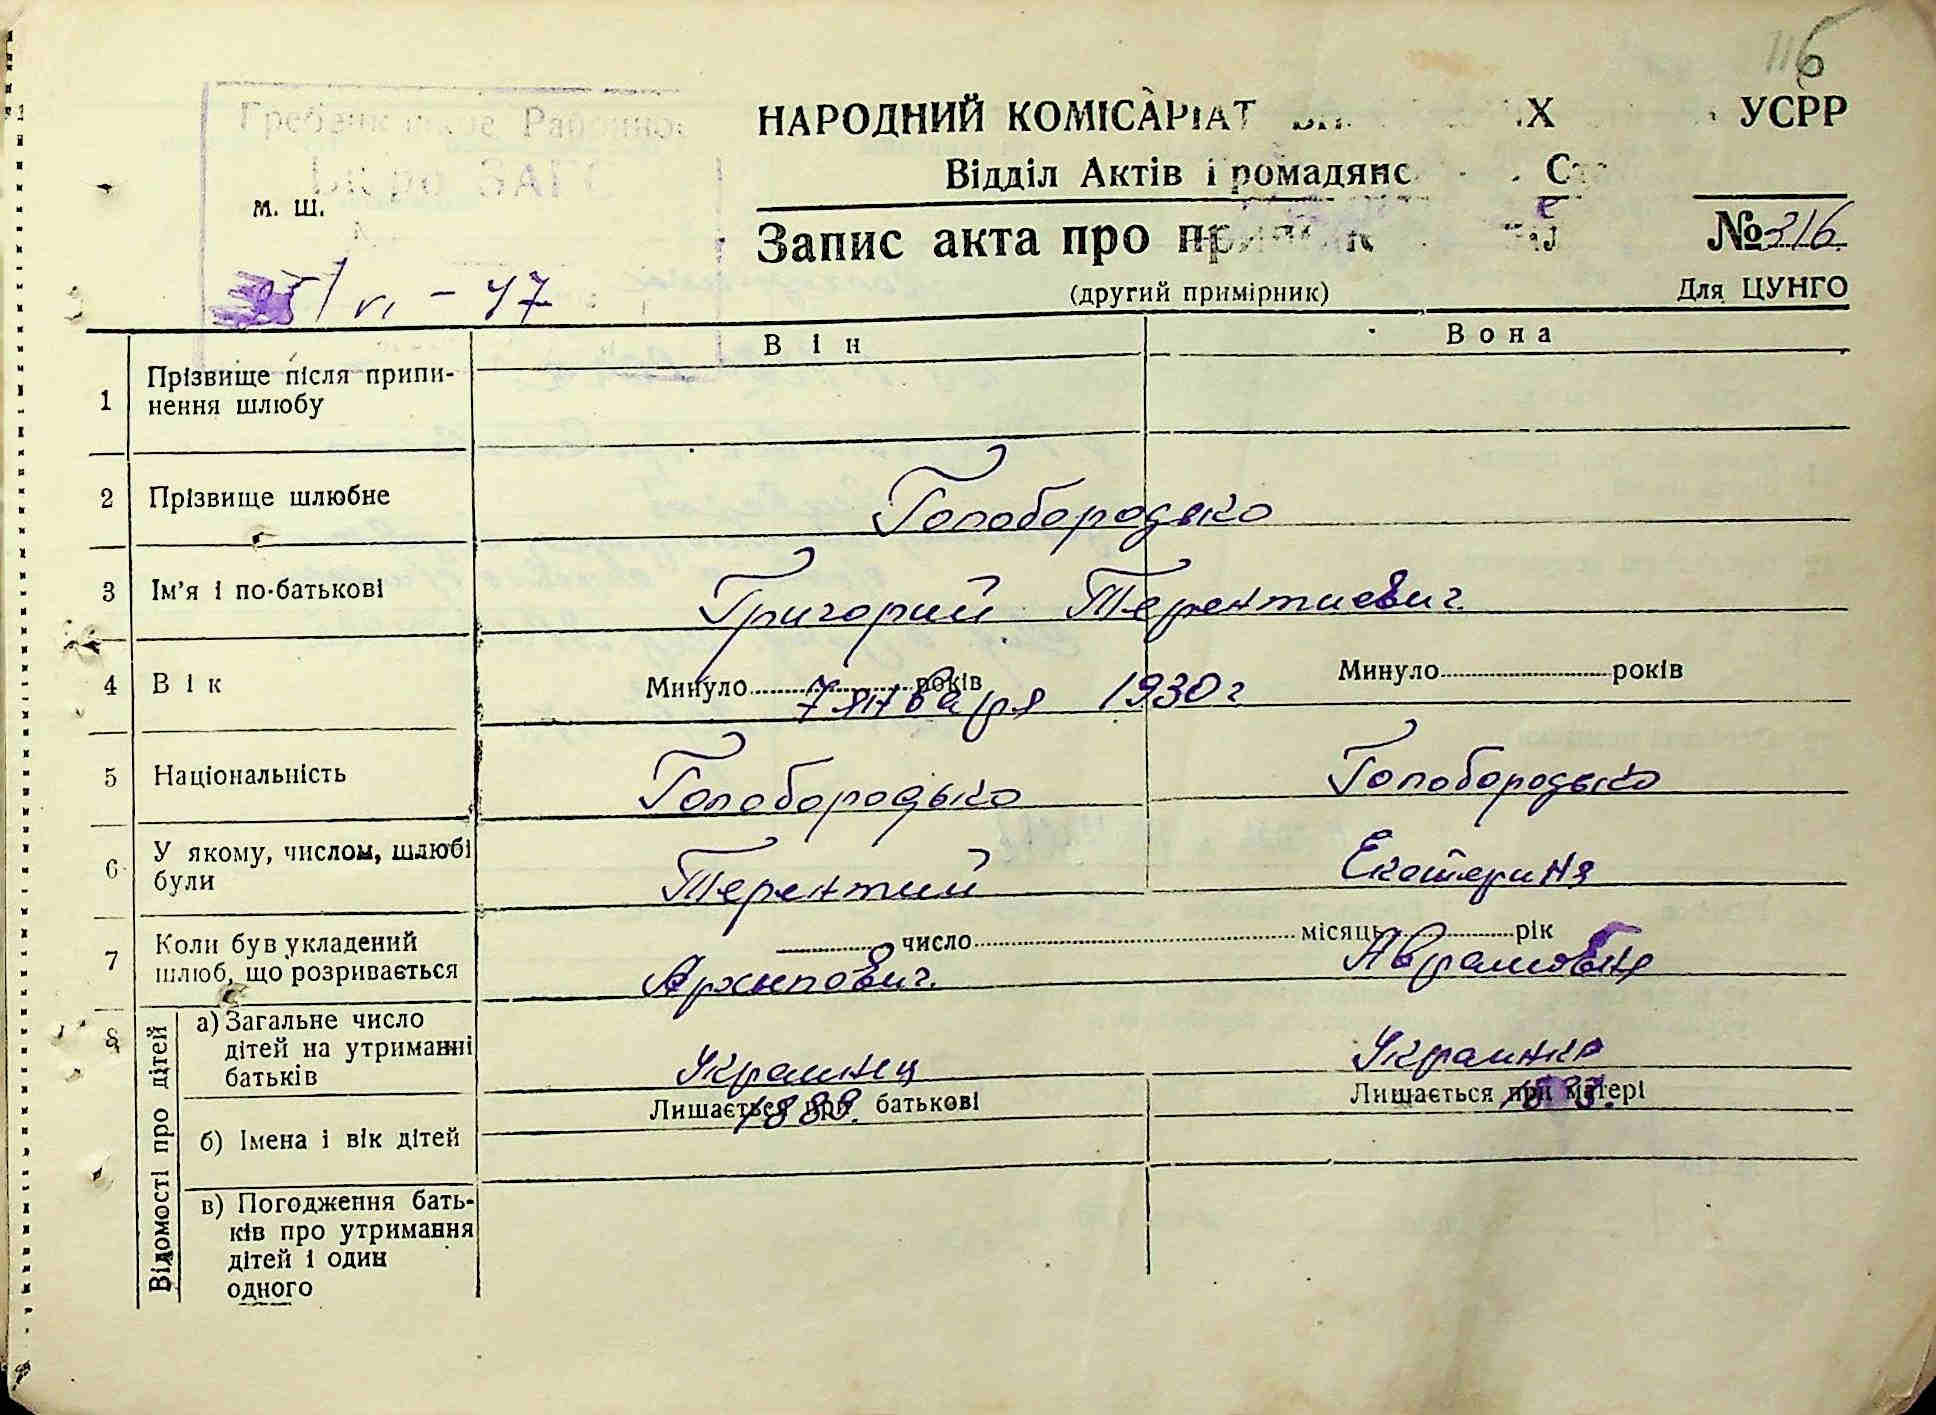 116
НАРОДНИЙ КОМІСАРІАТ УСРР
Відділ Актів Громадянс
Бюро ЗАГС
м. ш.
Запис акта про
№ 316
25/VI - 47
(другий примірник)
Для ЦУНГО
Він Вона
1 Прізвище після припи-
нення шлюбу
2 Прізвище шлюбне Голобородько
3 Ім'я і по-батькові Григорий Терентиевич
4 Вік Минуло років Минуло років
7 января 1930 г
5 Національність Голобородько Голобородько
6 У якому, числом, шлюбі
були Терентий Екатерина
7 Коли був укладений
шлюб, що розривається
число місяць рік
Архипович. Аврамовна
8 Відомості про дітей
а) Загальне число
дітей на утриманні
батьків
Украинец Украинка
Лишається при батькові Лишається при матері
1888.
б) Імена і вік дітей
в) Погодження бать-
ків про утримання
дітей і один
одного